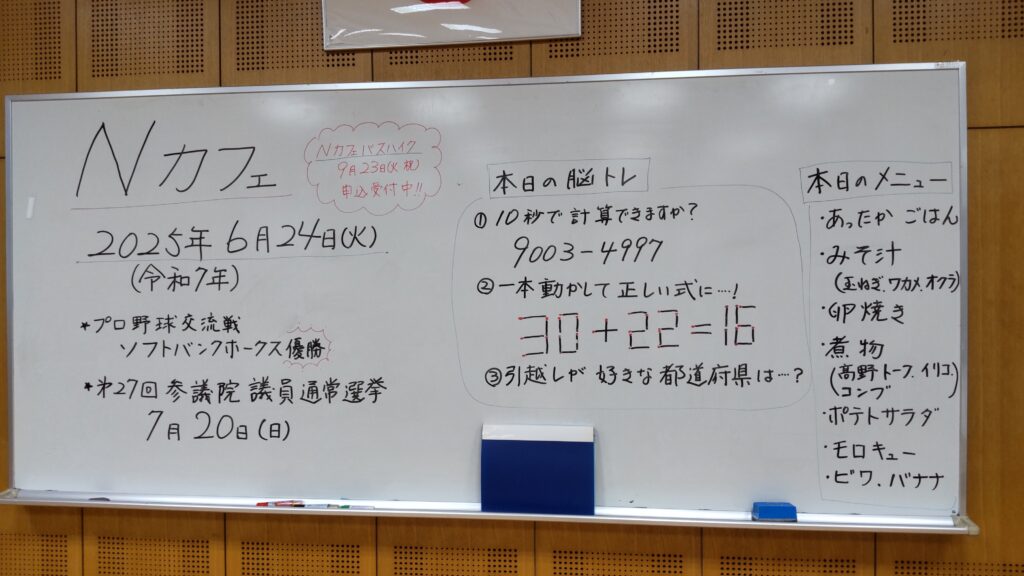 Nカフェ
Nカフェバスハイク
9月23日(火 祝)
申込受付中!!
2025年 6月24日(火)
(令和7年)
*プロ野球交流戦
ソフトバンクホークス優勝
*第27回 参議院 議員通常選挙
7月20日(日)
本日の脳トレ
① 10秒で計算できますか?
9003-4997
② 一本動かして正しい式に…!
30+22=16
③引越しが 好きな都道府県は…?
本日のメニュー
・あったか ごはん
・みそ汁
(玉ねぎ、ワカメ、オクラ)
・卵焼き
・煮物
(高野トーフ、イリコ、
コンブ)
・ポテトサラダ
・モロキュー
・ビワ、バナナ